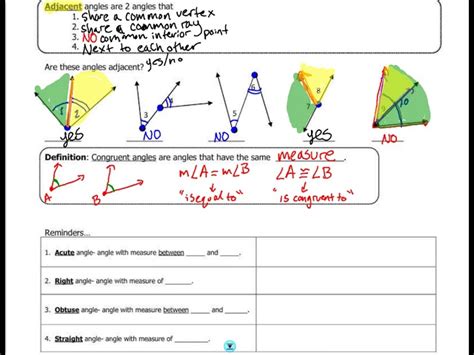 Adjacent angles are 2 angles that
1. share a common vertex
2. share a common ray
3. NO common interior point
4. Next to each other
Are these angles adjacent? yes/no
1 2 3 5 6 7 8 9 10
yes NO NO yes NO
Definition: Congruent angles are angles that have the same measure.
m∠A = m∠B ∠A ≅ ∠B
A B "is equal to" "is congruent to"
Reminders...
1. Acute angle- angle with measure between ____ and ____.
2. Right angle- angle with measure of ____.
3. Obtuse angle- angle with measure between ____ and ____.
4. Straight angle- angle with measure of ____.